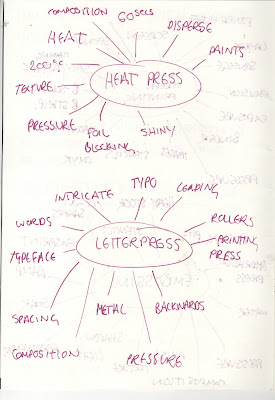 COMPOSITION
60SECS
DISPERSE
HEAT
PAINTS
200°C
HEAT PRESS
TEXTURE
PRESSURE
FOIL
BLOCKING
SHINY
TYPO
INTRICATE
LEADING
WORDS
ROLLERS
LETTERPRESS
PRINTING
PRESS
TYPEFACE
METAL
BACKWARDS
SPACING
COMPOSITION
PRESSURE